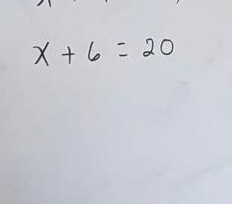 x + 6 = 20